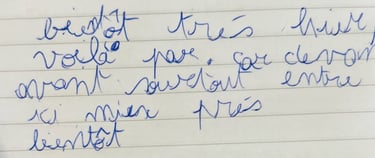 bientôt très hier,
voilà par. car devan
avant surtout entre
ici mieux près
bientôt